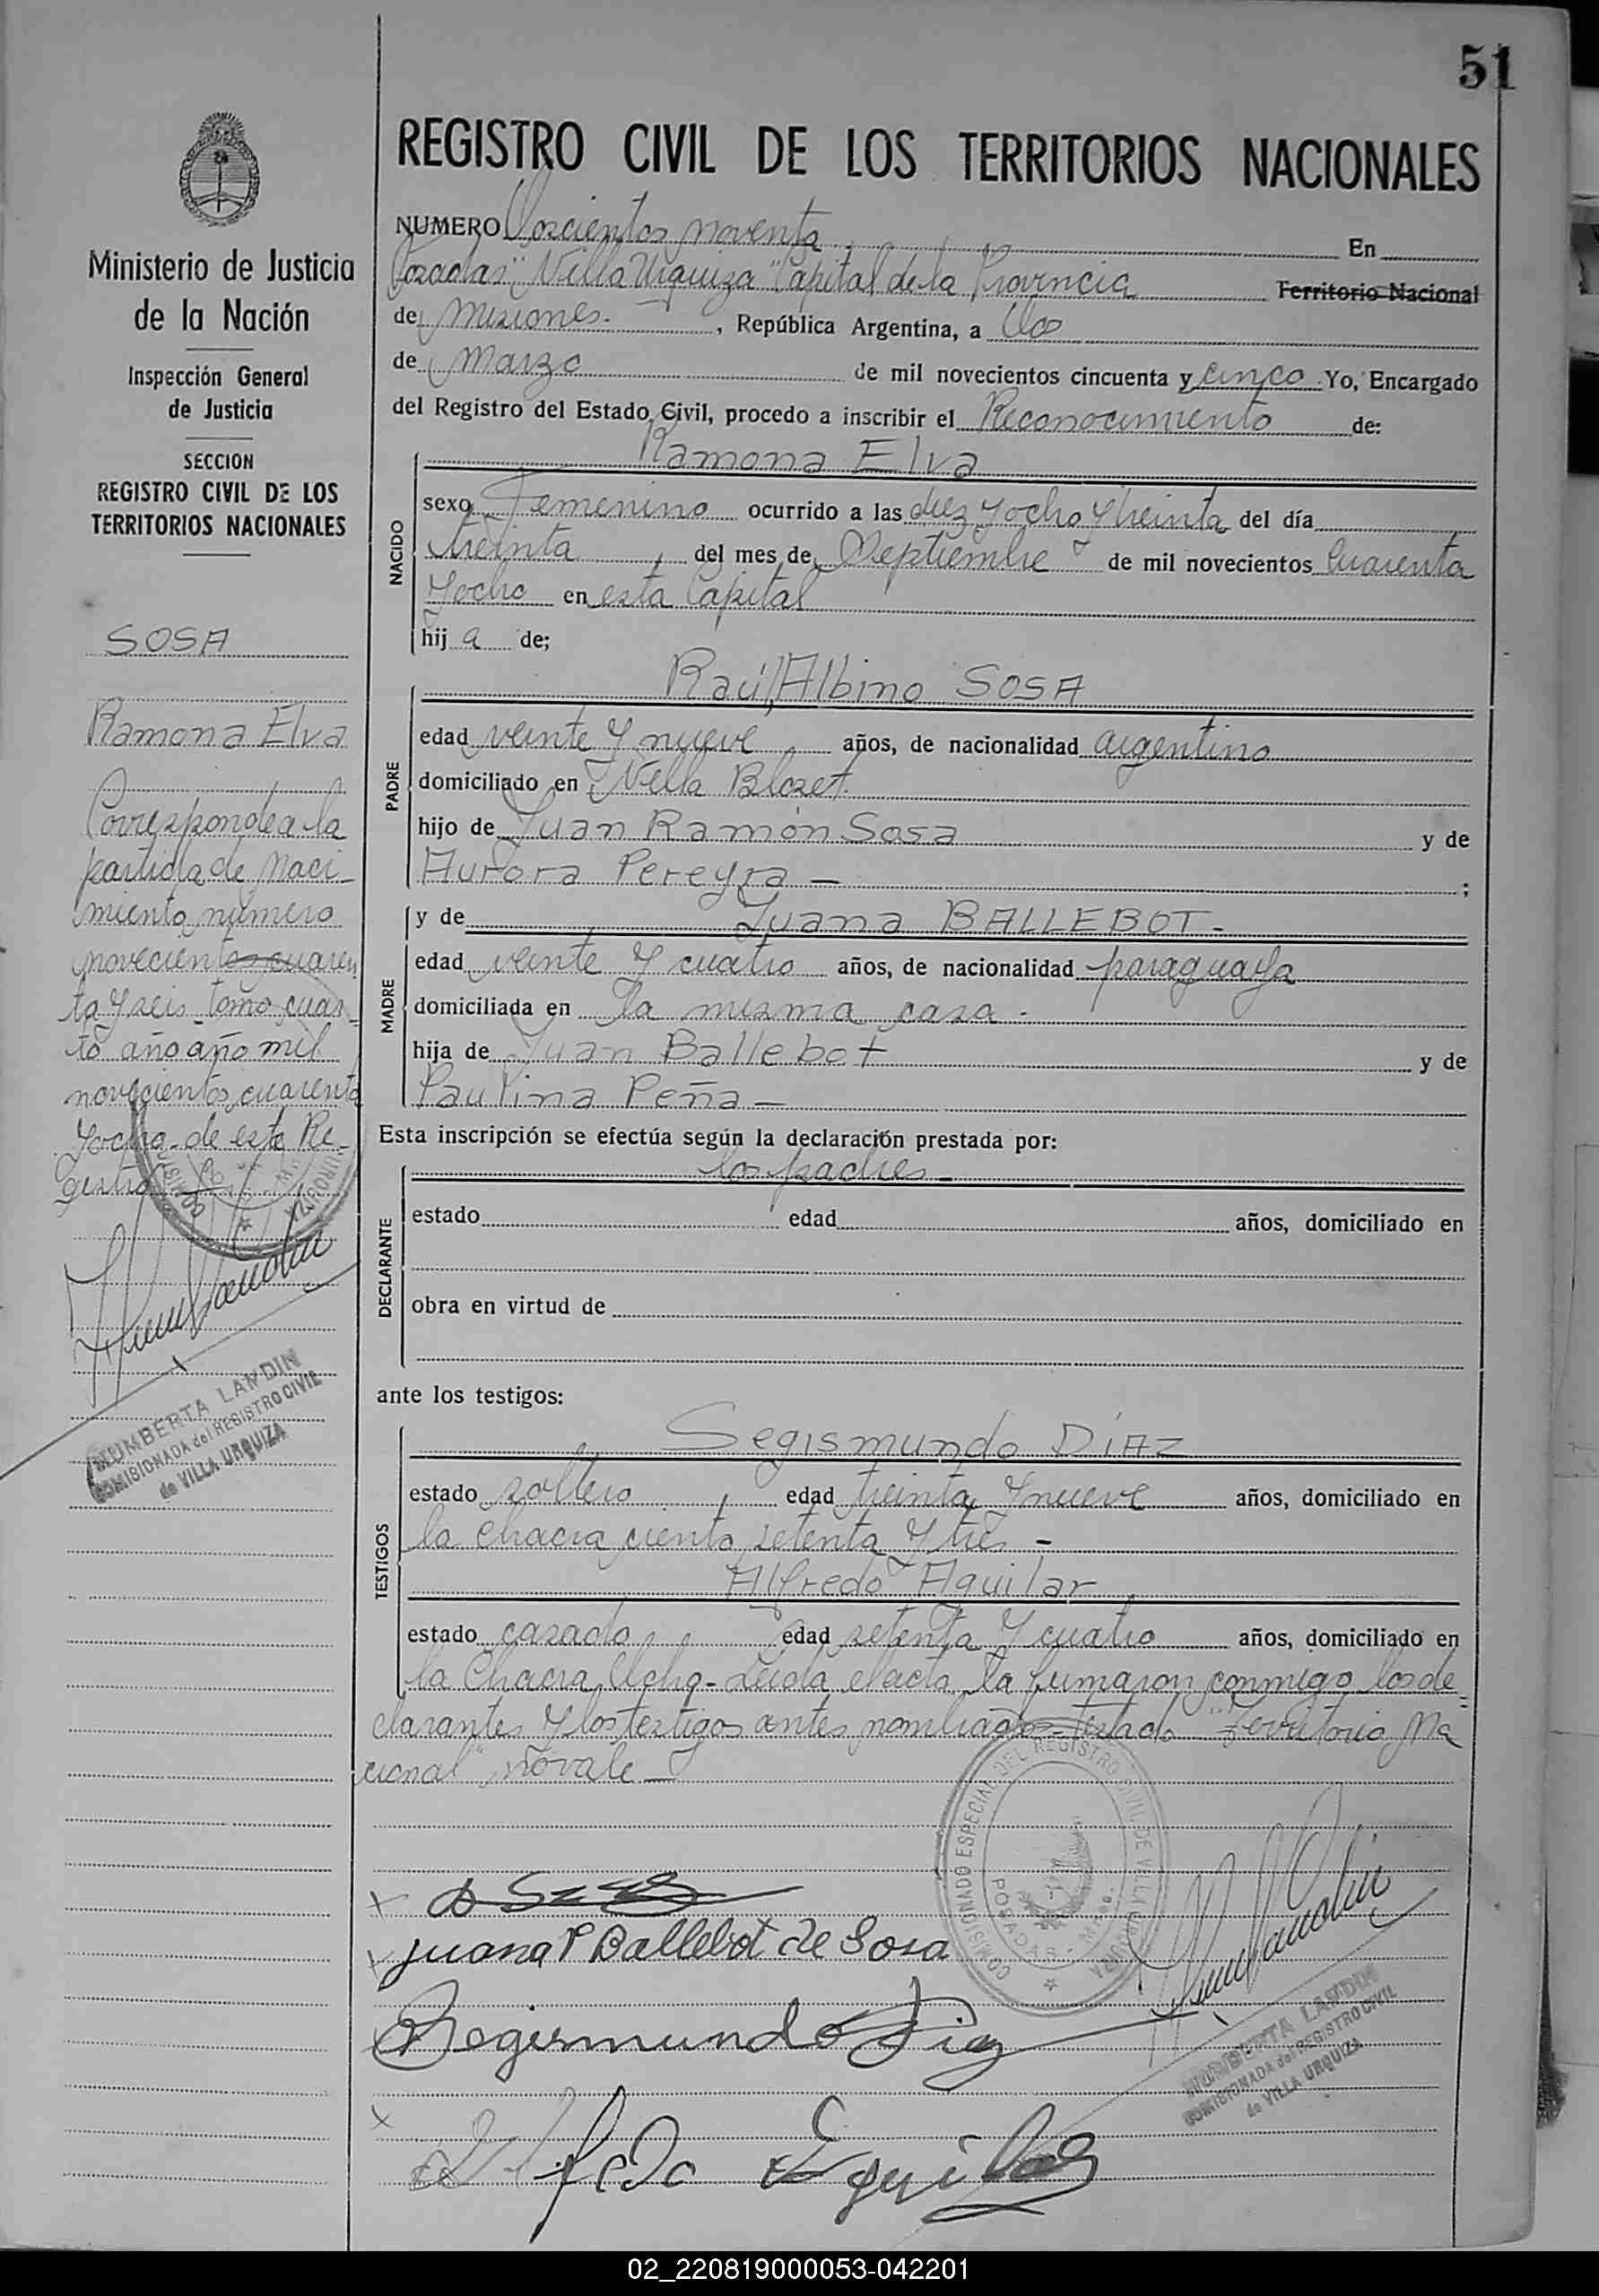 51
Ministerio de Justicia
de la Nación
Inspección General
de Justicia
SECCION
REGISTRO CIVIL DE LOS
TERRITORIOS NACIONALES
SOSA
Ramona Elva
Corresponde a la
partida de naci-
miento número
novecientos cuaren
ta y seis - tomo cuar-
to año año mil
novecientos cuarenta
y ocho - de este Re-
gistro
HUMBERTA LANDIN
COMISIONADA del REGISTRO CIVIL
de VILLA URQUIZA
REGISTRO CIVIL DE LOS TERRITORIOS NACIONALES
NUMERO Doscientos noventa En
Posadas "Villa Urquiza" Capital de la Provincia Territorio Nacional
de Misiones. , República Argentina, a dos
de Marzo de mil novecientos cincuenta y cinco Yo, Encargado
del Registro del Estado Civil, procedo a inscribir el Reconocimiento de:
Ramona Elva
NACIDO
sexo Femenino ocurrido a las diez y ocho y treinta del día
treinta del mes de Septiembre de mil novecientos cuarenta
y ocho en esta Capital
hij a de;
Raúl Albino SOSA
PADRE
edad veinte y nueve años, de nacionalidad argentino
domiciliado en Villa Blozet.
hijo de Juan Ramón Sosa y de
Aurora Pereyra - ;
y de Juana BALLEBOT -
MADRE
edad veinte y cuatro años, de nacionalidad paraguaya
domiciliada en la misma casa -
hija de Juan Ballebot y de
Paulina Peña -
Esta inscripción se efectúa según la declaración prestada por:
los padres -
DECLARANTE
estado edad años, domiciliado en
obra en virtud de
ante los testigos:
Segismundo DIAZ
TESTIGOS
estado soltero edad treinta y nueve años, domiciliado en
la chacra ciento setenta y tres -
Alfredo Aguilar
estado casado edad setenta y cuatro años, domiciliado en
la Chacra Ocho - Leida el acta la firmaron conmigo los de=
clarantes y los testigos antes nombrados - Testado "Territorio Na
cional" no vale -
COMISIONADO ESPECIAL DEL REGISTRO CIVIL DE VILLA URQUIZA
POSADAS - Mnes.
Juana P Ballebot de Sosa
Segismundo Diaz
Alfredo Aguilar
HUMBERTA LANDIN
COMISIONADA del REGISTRO CIVIL
de VILLA URQUIZA
02_220819000053-042201